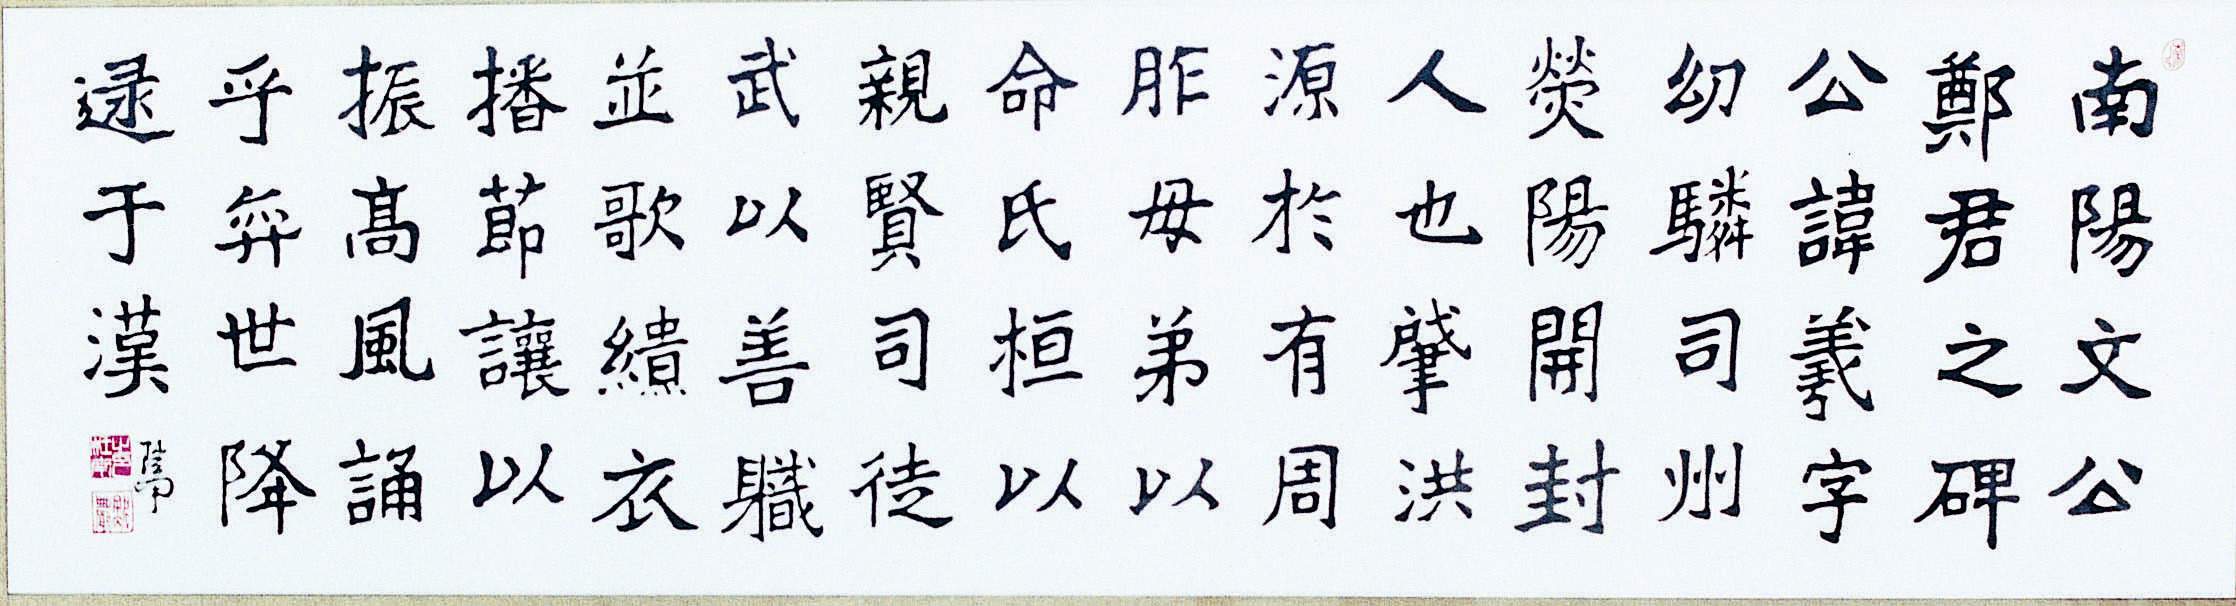 南陽文公
鄭君之碑
公諱羲字
幼驎司州
熒陽開封
人也肈洪
源於有周
胙母弟以
命氏桓以
親賢司徒
武以善職
並歌繢衣
播節讓以
振高風誦
乎弈世降
逯于漢